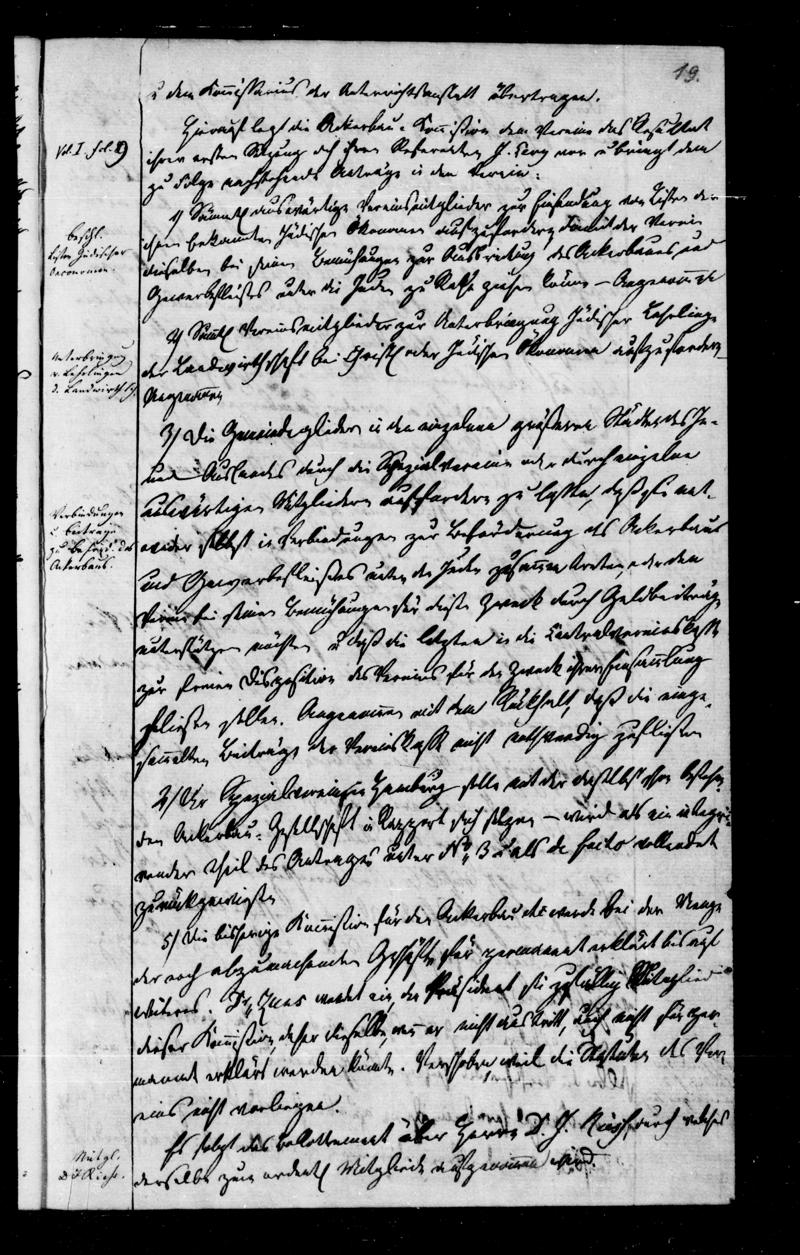 19.
u dem Kommissarius der Unterrichtsanstalt übertragen.
Vol. I. fol. 9
Hierauf legt die Ackerbau-Kommission dem Verein das Resultat
ihrer ersten Sitzung dch ihren Referenten H. vor u bringt dem
zu Folge nachstehende Anträge in den Verein:
1) Sämmtl auswärtige Vereinsmitglieder zur Einsendung von Listen der
ihnen bekannten jüdischen Ökonomen aufzufordern, damit der Verein
dieselben bei seinen Bemühungen zur Ausbreitung des Ackerbaues und
Gewerbefleißes unter die Juden zu Rathe ziehen könne – Angenommen
Beschl.
Listen jüdischer
Oeconomen.
2) Sämtl Vereinsmitglieder zur Unterbringung jüdischer Lehrlinge
der Landwirthschaft bei christl oder jüdischen Ökonomen aufzufordern –
Angenommen
Unterbringung
v. Lehrlingen
d. Landwirthsch.
3) Die Gemeindeglieder in den einzelnen größeren Städten des In-
und Auslandes durch die Spezialvereine oder durch einzelne
auswärtigen Mitglieder auffordern zu lassen, daß sie ent-
weder selbst in Verbindungen zur Beförderung des Ackerbaus
und Gewerbefleißes unter den Juden zusammen treten, oder den
Verein bei seinen Bemühungen für diesen Zweck durch Geldbeiträge
unterstützen möchten, u daß die letzten in die Centralvereinskasse
zur freien Disposition des Vereins für den Zweck ihrer Einsammlung
fließen sollen. Angenommen mit dem Rückhalt, daß die einge-
sammelten Beiträge der Vereinskasse nicht nothwendig zufließen
Verbindungen
u. Beiträge
zu Beförd. des
Ackerbaus.
4) Der Spezialverein in Hamburg solle mit der daselbst schon bestehen-
den Ackerbau-Gesellschaft in Rapport sich setzen – wird als ein integri-
render Theil des Antrages unter No. 3 u als de facto vollendet
zurückgewiesen
5) Die bisherige Kommission für den Ackerbau etc werde bei der Menge
der noch abzumachenden Geschäfte für permanent erklärt bis auf
weiteres. Dr. wendet ein, der Präsident sei zufällig Mitglied
dieser Kommission, daher dieselbe, wenn er nicht austritt, auch nicht für per-
manent erklärt werden könnte. Verschoben, weil die Statuten des Ver-
eins nicht vorliegen.
Es folgt das Ballottement über Herrn D. J. durch welches
derselbe zum ordentl Mitgliede aufgenommen wird.
Mitgl.